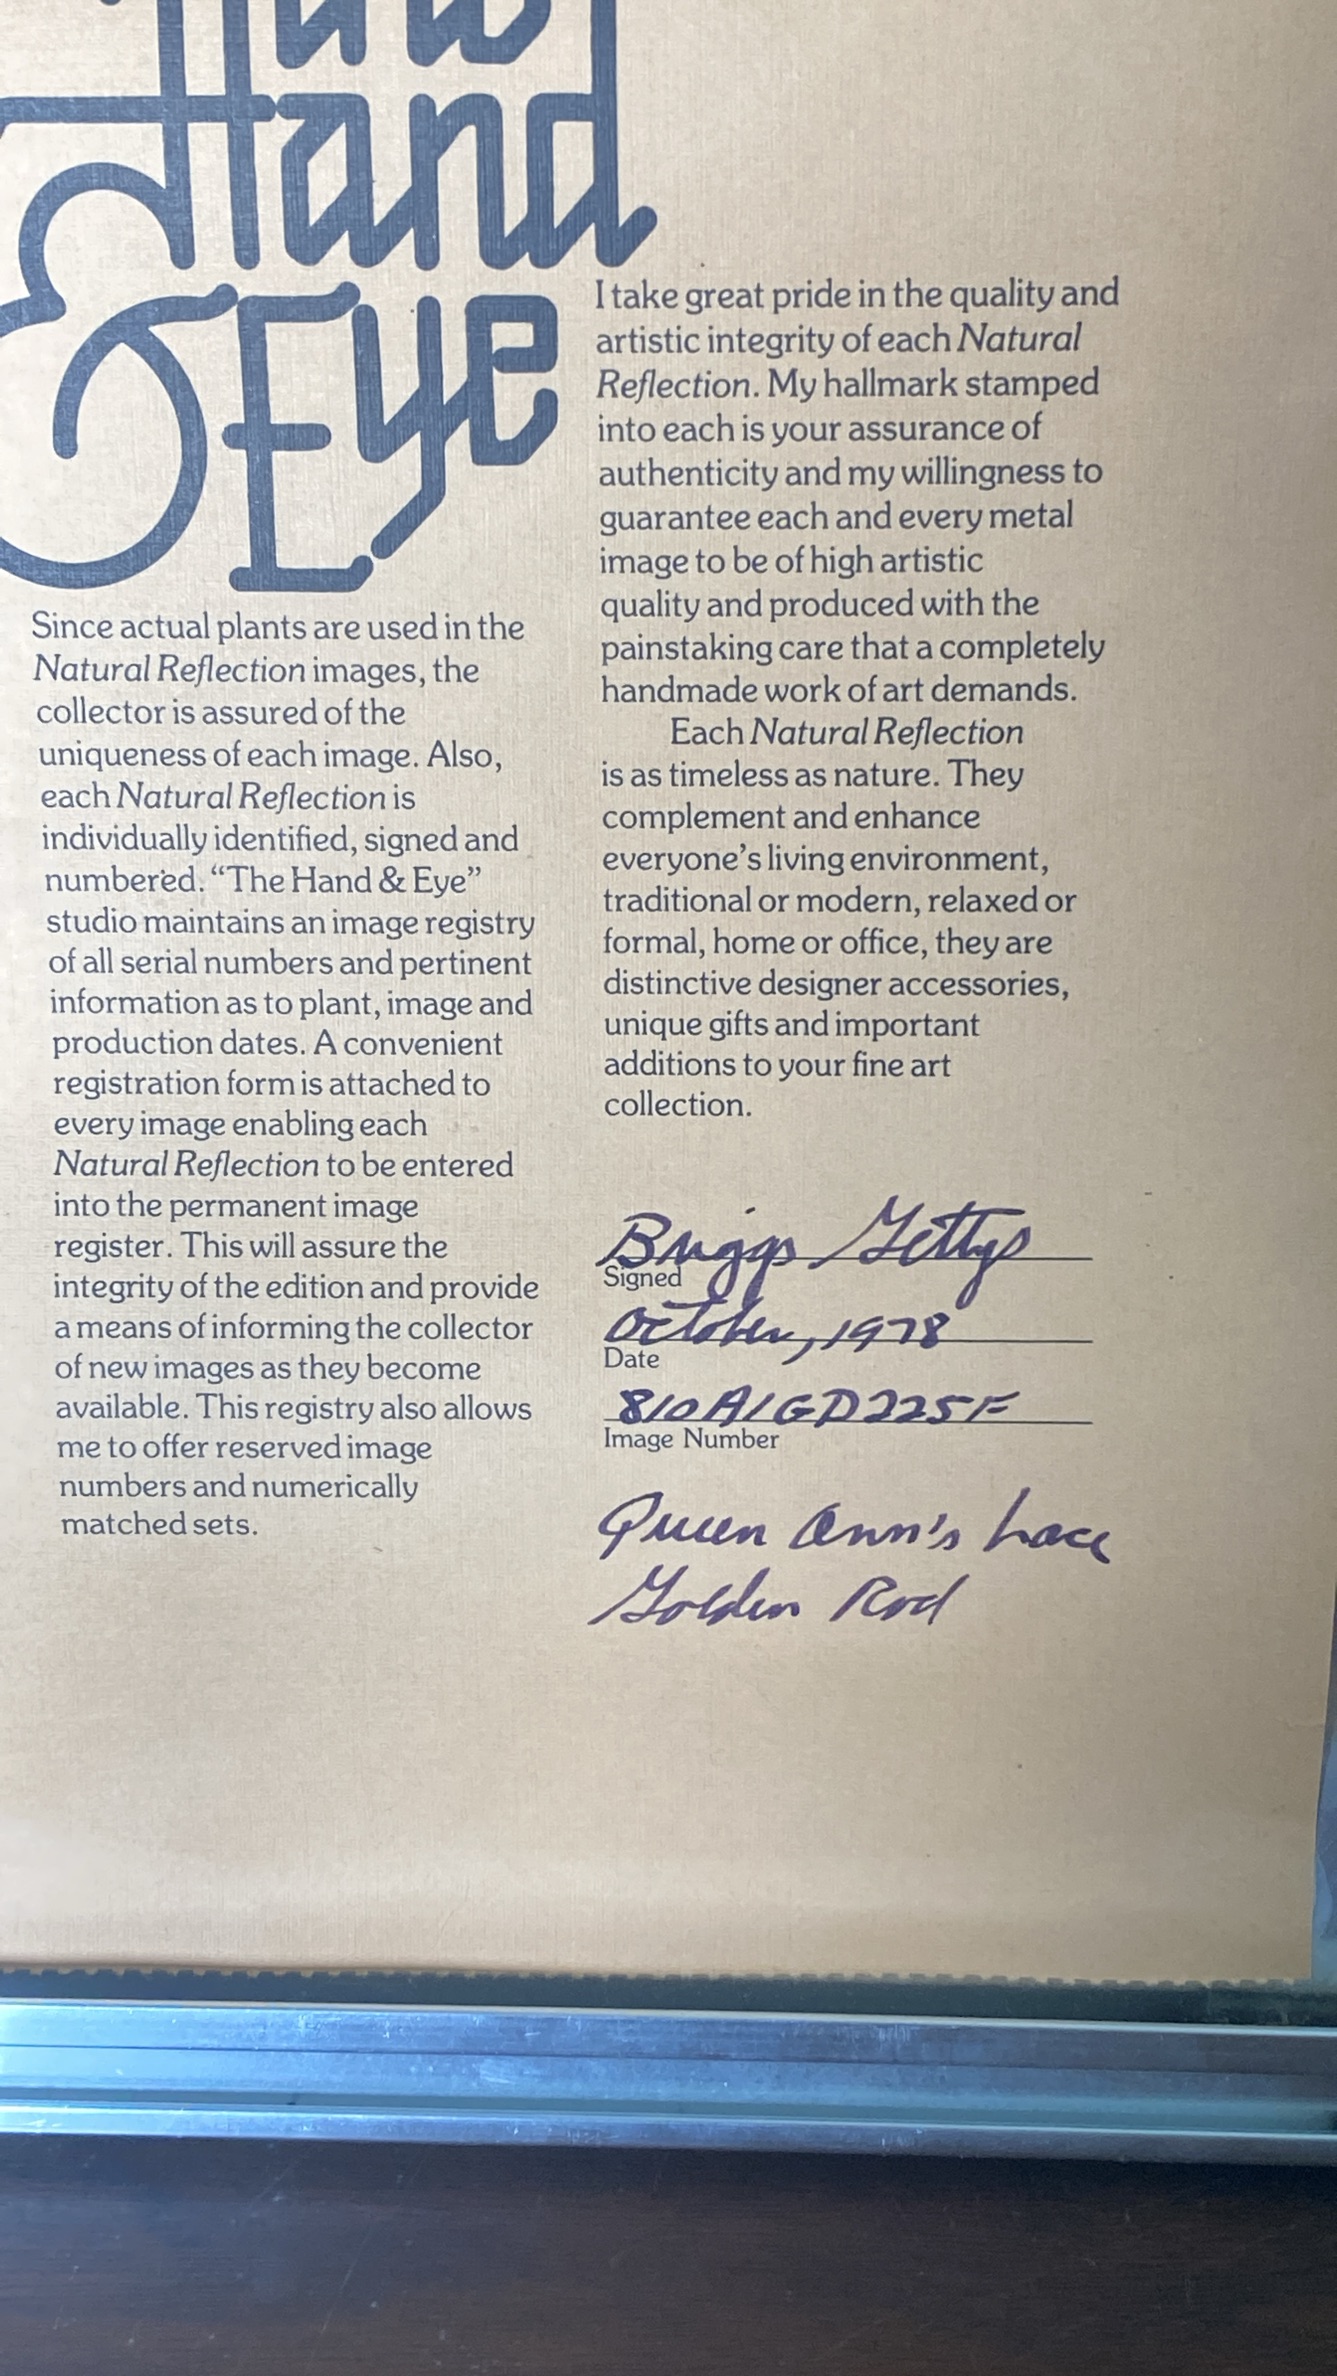 Hand
& Eye
Since actual plants are used in the
Natural Reflection images, the
collector is assured of the
uniqueness of each image. Also,
each Natural Reflection is
individually identified, signed and
numbered. “The Hand & Eye”
studio maintains an image registry
of all serial numbers and pertinent
information as to plant, image and
production dates. A convenient
registration form is attached to
every image enabling each
Natural Reflection to be entered
into the permanent image
register. This will assure the
integrity of the edition and provide
a means of informing the collector
of new images as they become
available. This registry also allows
me to offer reserved image
numbers and numerically
matched sets.
I take great pride in the quality and
artistic integrity of each Natural
Reflection. My hallmark stamped
into each is your assurance of
authenticity and my willingness to
guarantee each and every metal
image to be of high artistic
quality and produced with the
painstaking care that a completely
handmade work of art demands.
Each Natural Reflection
is as timeless as nature. They
complement and enhance
everyone’s living environment,
traditional or modern, relaxed or
formal, home or office, they are
distinctive designer accessories,
unique gifts and important
additions to your fine art
collection.
Briggs Gettys
Signed
October, 1978
Date
810A1GD225F
Image Number
Queen Ann's Lace
Golden Rod